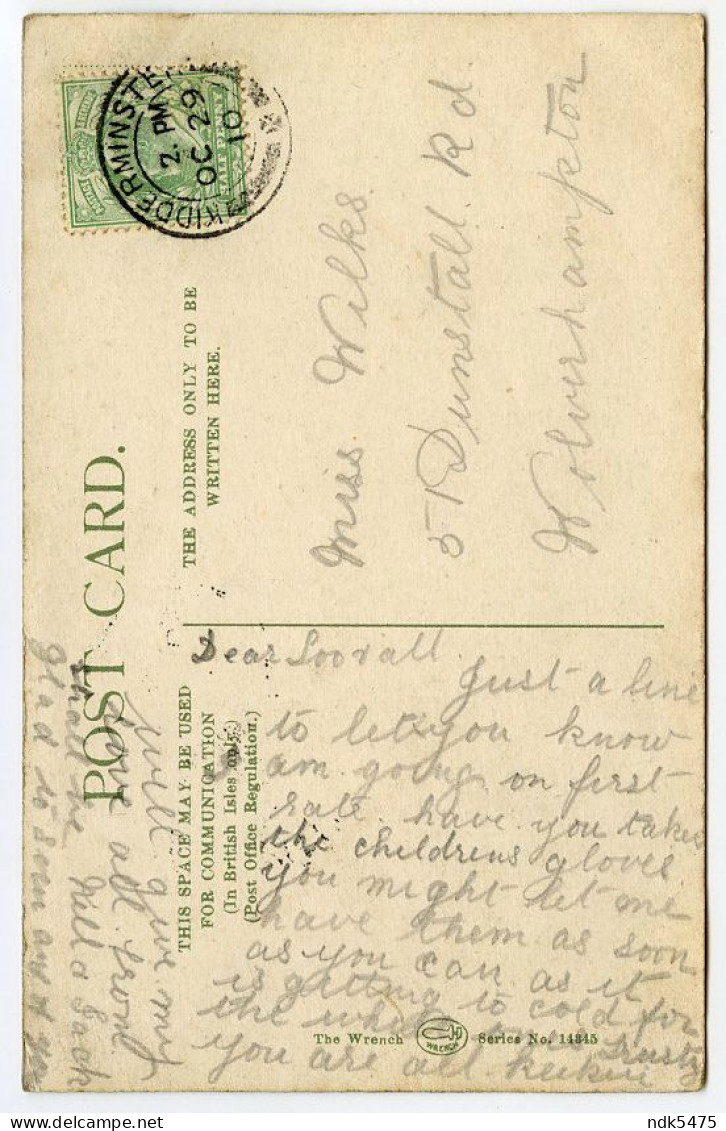 KIDDERMINSTER
2. PM
OC 29
10
POST CARD.
THE ADDRESS ONLY TO BE
WRITTEN HERE.
Miss Wilks
51 Dunstall Rd
Wolverhampton
THIS SPACE MAY BE USED
FOR COMMUNICATION
(In British Isles only.)
(Post Office Regulation.)
Dear
Just a line
to let you know
am going on first
rate have you takes
the childrens gloves
you might let me
have them as soon
as you can as it
is getting to cold for
the
you are all
will give my
love all from
shall be
glad to
The Wrench
WRENCH
Series No. 14845
ndk5475